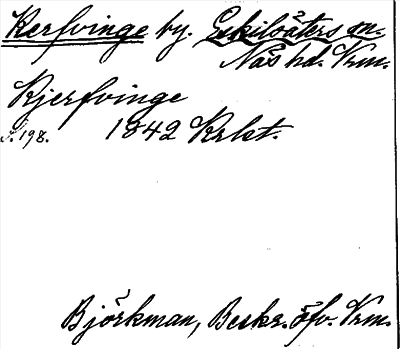 Kerfvinge by. Eskilsäters sn.
Näs hd. Vrm.
Kjerfvinge
s. 198. 1842 Krkt.
Björkman, Beskr. öfv. Vrm.